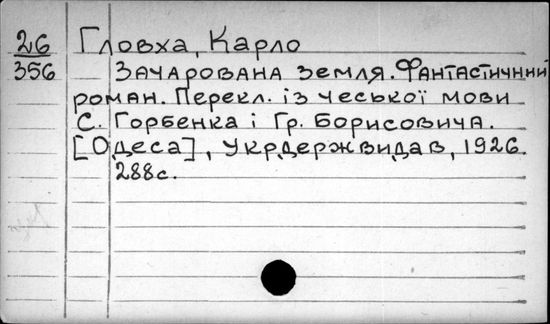 26 Гловха, Карло
356 Зачарована земля. Фантастичний
роман. Перекл. із чеської мови
С. Горбенка і Гр. Борисовича.
[Одеса], Укрдержвидав, 1926.
288с.